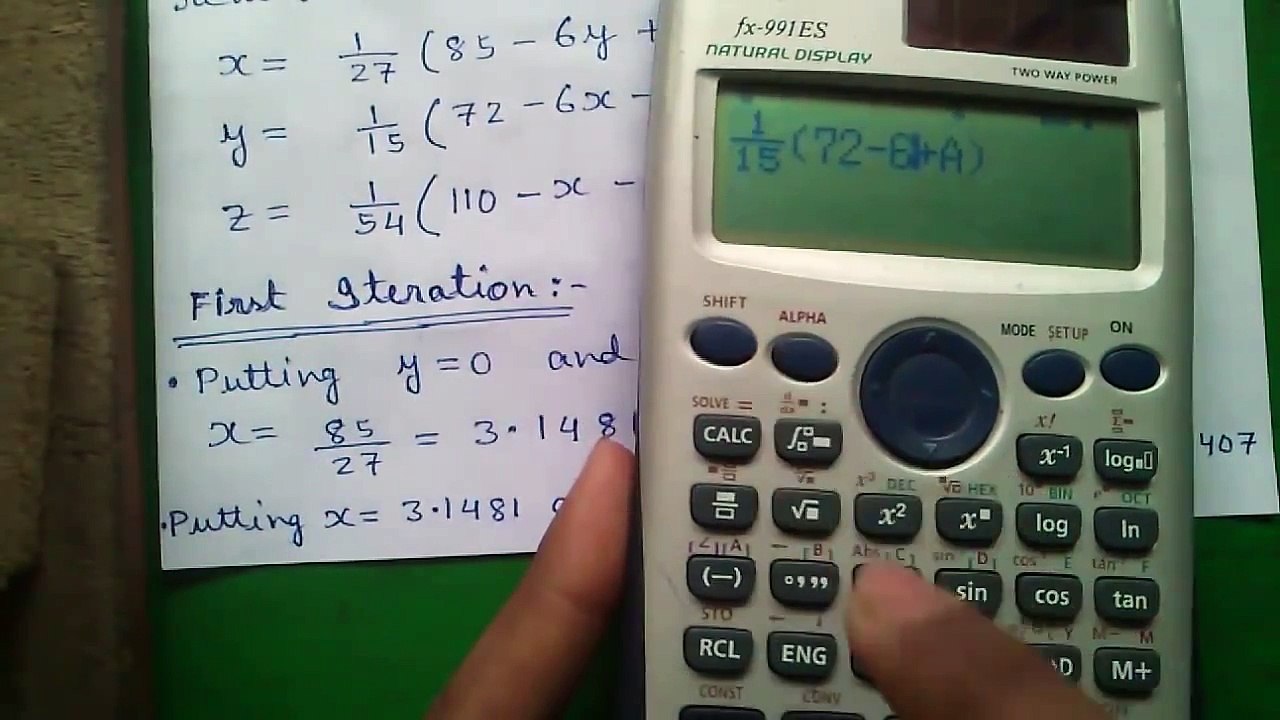 x = 1/27 (85 - 6y +
y = 1/15 (72 - 6x -
z = 1/54 (110 - x -
First Iteration :-
• Putting y = 0 and
x = 85/27 = 3.1481
• Putting x = 3.1481
407
fx-991ES
NATURAL DISPLAY
TWO WAY POWER
1/15(72-6+A)
SHIFT ALPHA MODE SETUP ON
SOLVE = d/dx : x! Σ=
CALC ∫ x⁻¹ log
x³ DEC HEX 10 BIN OCT
√ x² x log ln
∠ A B Abs C sin D cos E tan F
(—) sin cos tan
STO Y M- M
RCL ENG M+
CONST CONV